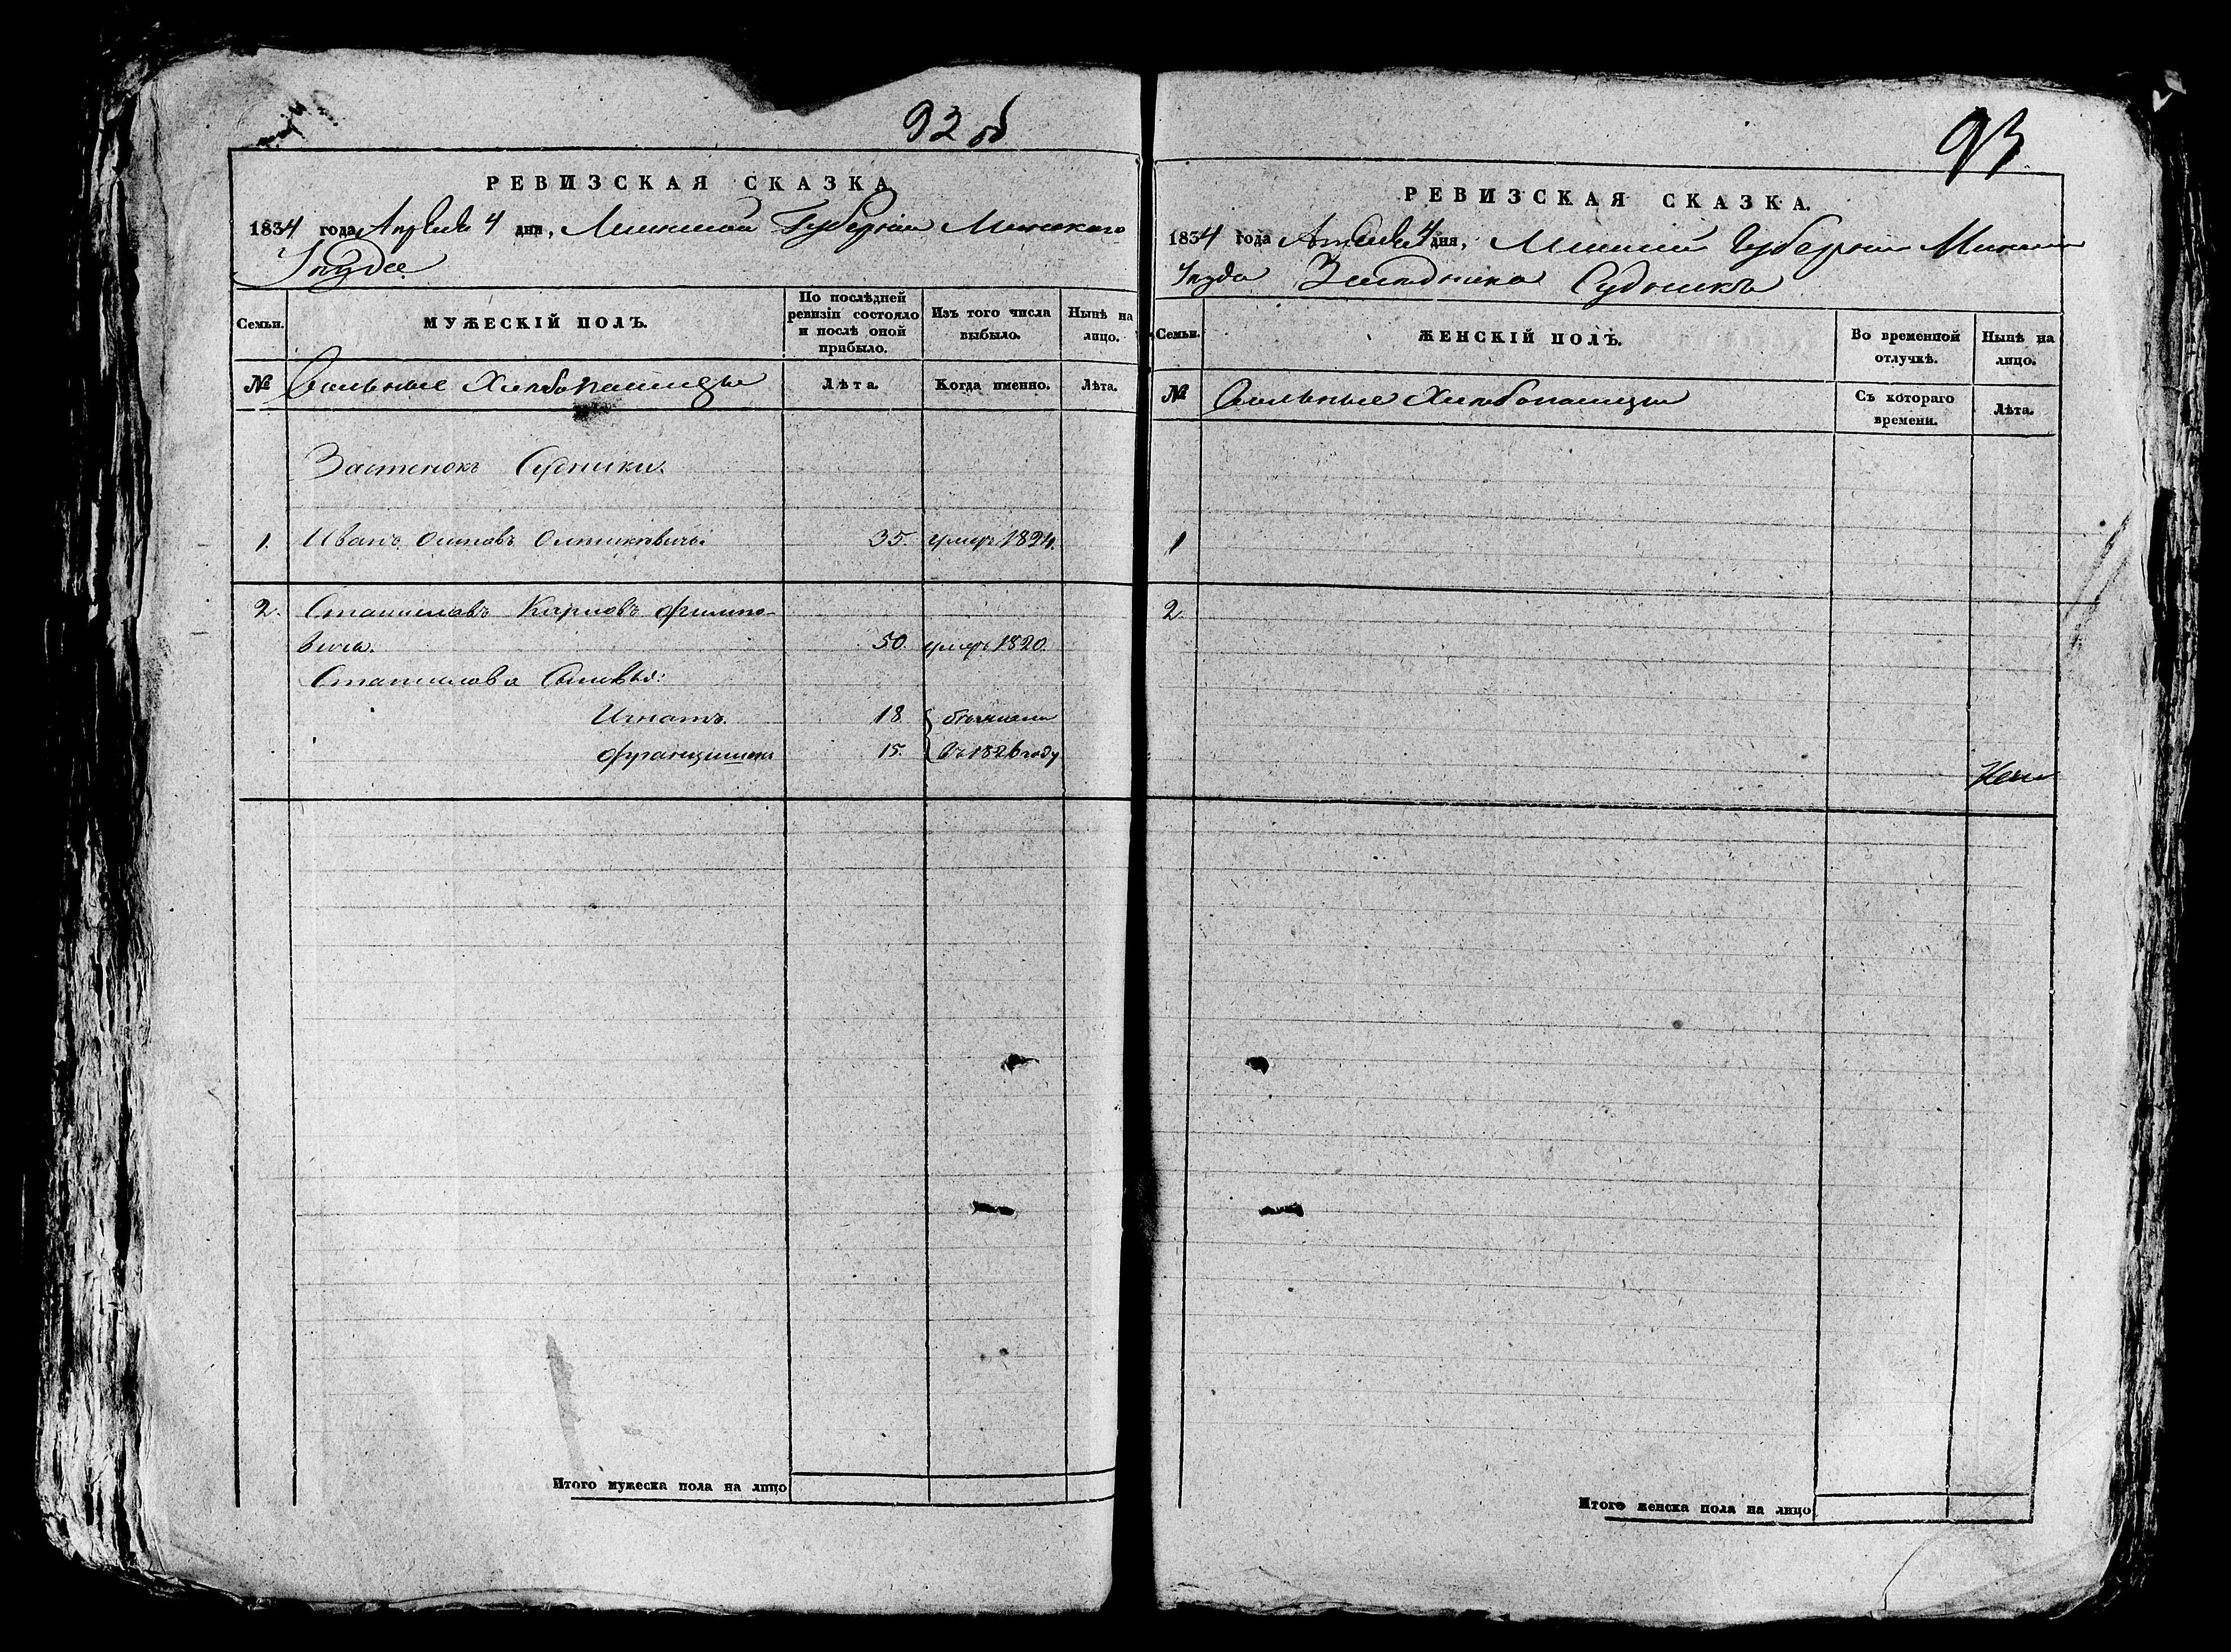 92 об
РЕВИЗСКАЯ СКАЗКА
1834 года Апреля 4 дня, Минской Губернiи Минскаго
Уезда
Семьи. МУЖЕСКІЙ ПОЛЪ. По послѣдней ревизіи состояло и послѣ оной прибыло. Изъ того числа выбыло. Нынѣ на лицо.
№ Вольные Хлебопашцы Лѣта. Когда именно. Лѣта.
Застенокъ Судники.
1. Иванъ Осиповъ 35. умеръ 1824.
2. Станиславъ Карповъ Филипо-
вичъ. 50. умеръ 1820.
Станислава Сыновья:
Игнатъ. 18
Францишекъ 15. въ 1826 году
Итого мужеска пола на лицо
93
РЕВИЗСКАЯ СКАЗКА.
1834 года Апреля 4 дня, Минской Губернiи Минскаго
Уезда Застенка Судникъ
Семьи. ЖЕНСКІЙ ПОЛЪ. Во временной отлучкѣ. Нынѣ на лицо.
№ Вольные Хлебопашцы Съ котораго времени. Лѣта.
1
2.
Итого женска пола на лицо